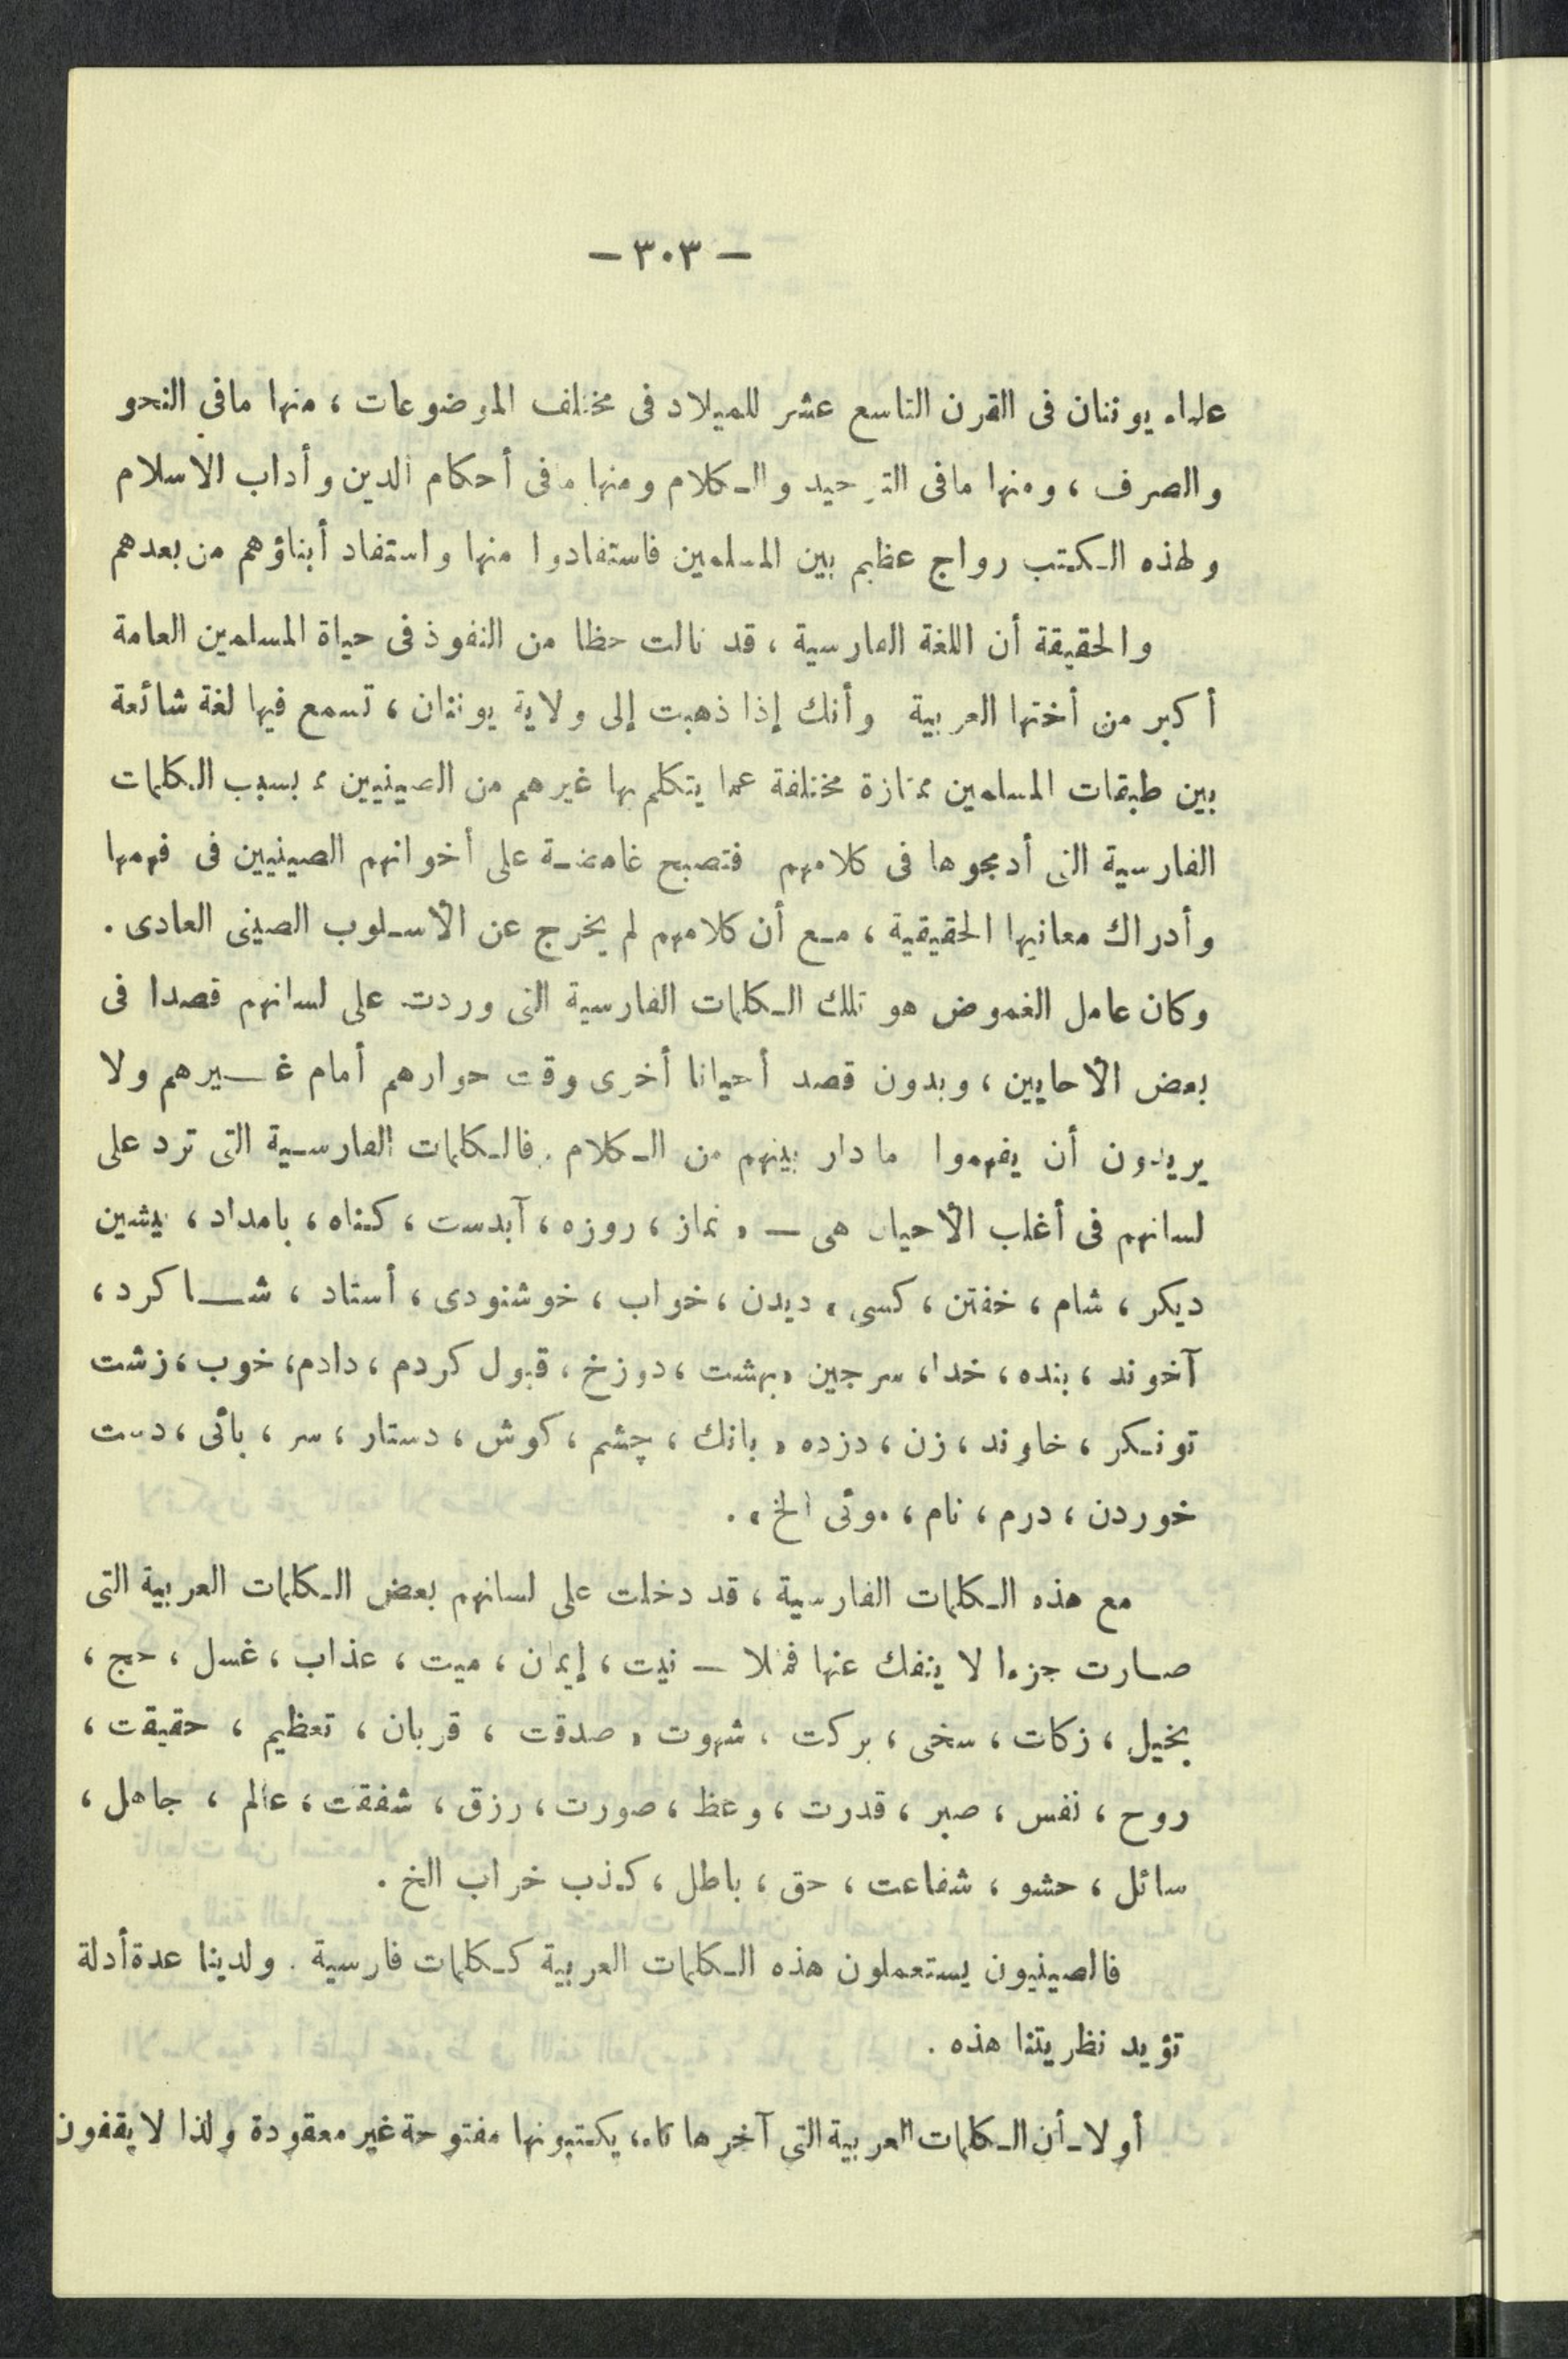 — ٣٠٣ —
علماء يوننان فى القرن التاسع عشر للميلاد فى مختلف الموضوعات ، منها مافى النحو
والصرف ، ومنها مافى التوحيد والكلام ومنها مافى أحكام الدين وأداب الاسلام
ولهذه الكتب رواج عظيم بين المسلمين فاستفادوا منها واستفاد أبناؤهم من بعدهم
والحقيقة أن اللغة الفارسية ، قد نالت حظا من النفوذ فى حياة المسلمين العامة
أكبر من أختها العربية وأنك إذا ذهبت إلى ولاية يوننان ، تسمع فيها لغة شائعة
بين طبقات المسلمين ممتازة مختلفة عما يتكلم بها غيرهم من الصينيين ، بسبب الكلمات
الفارسية التى أدمجوها فى كلامهم فتصبح غامضة على أخوانهم الصينيين فى فهمها
وأدراك معانيها الحقيقية ، مع أن كلامهم لم يخرج عن الأسلوب الصينى العادى .
وكان عامل الغموض هو تلك الكلمات الفارسية التى وردت على لسانهم قصدا فى
بعض الأحايين ، وبدون قصد أحيانا أخرى وقت حوارهم أمام غيرهم ولا
يريدون أن يفهموا ما دار بينهم من الكلام . فالكلمات الفارسية التى ترد على
لسانهم فى أغلب الأحيان هى — ، نماز ، روزه ، آبدست ، كناه ، بامداد ، يشين
ديكر ، شام ، خفتن ، كسى ، ديدن ، خواب ، خوشنودى ، أستاد ، شاكرد ،
آخوند ، بنده ، خدا ، سرجين ، بهشت ، دوزخ ، قبول كردم ، دادم ، خوب ، زشت
تونكر ، خاوند ، زن ، دزده ، بانك ، چشم ، كوش ، دستار ، سر ، بائى ، دست
خوردن ، درم ، نام ، موئى الخ ، .
مع هذه الكلمات الفارسية ، قد دخلت على لسانهم بعض الكلمات العربية التى
صارت جزءا لا ينفك عنها فمثلا — نيت ، إيمان ، ميت ، عذاب ، غسل ، حج ،
بخيل ، زكات ، سخى ، بركت ، شهوت ، صدقت ، قربان ، تعظيم ، حقيقت ،
روح ، نفس ، صبر ، قدرت ، وعظ ، صورت ، رزق ، شفقت ، عالم ، جاهل ،
سائل ، حشو ، شفاعت ، حق ، باطل ، كذب خراب الخ .
فالصينيون يستعملون هذه الكلمات العربية ككلمات فارسية . ولدينا عدة أدلة
تؤيد نظريتنا هذه .
أولا - أن الكلمات العربية التى آخرها تاء ، يكتبونها مفتوحة غير معقودة ولذا لا يقفون